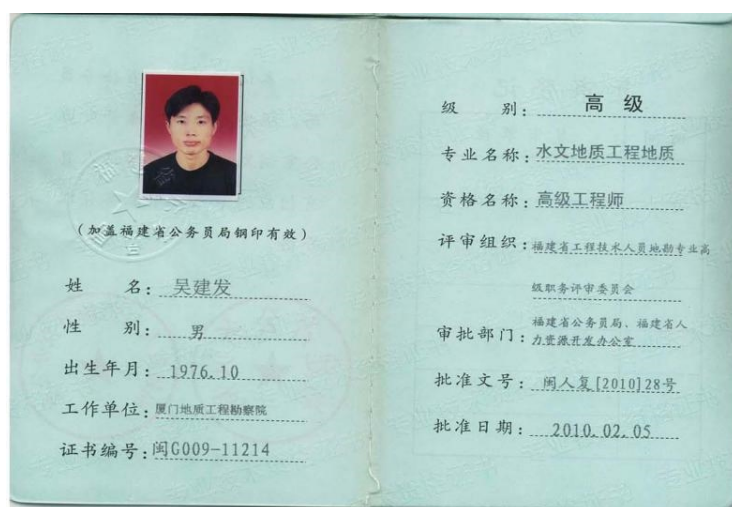 (加盖福建省公务员局钢印有效)
姓 名：吴建发
性 别：男
出生年月：1976.10
工作单位：厦门地质工程勘察院
证书编号：闽G009-11214
级 别：高 级
专业名称：水文地质工程地质
资格名称：高级工程师
评审组织：福建省工程技术人员地勘专业高
级职务评审委员会
审批部门：福建省公务员局、福建省人
力资源开发办公室
批准文号：闽人复[2010]28号
批准日期：2010.02.05